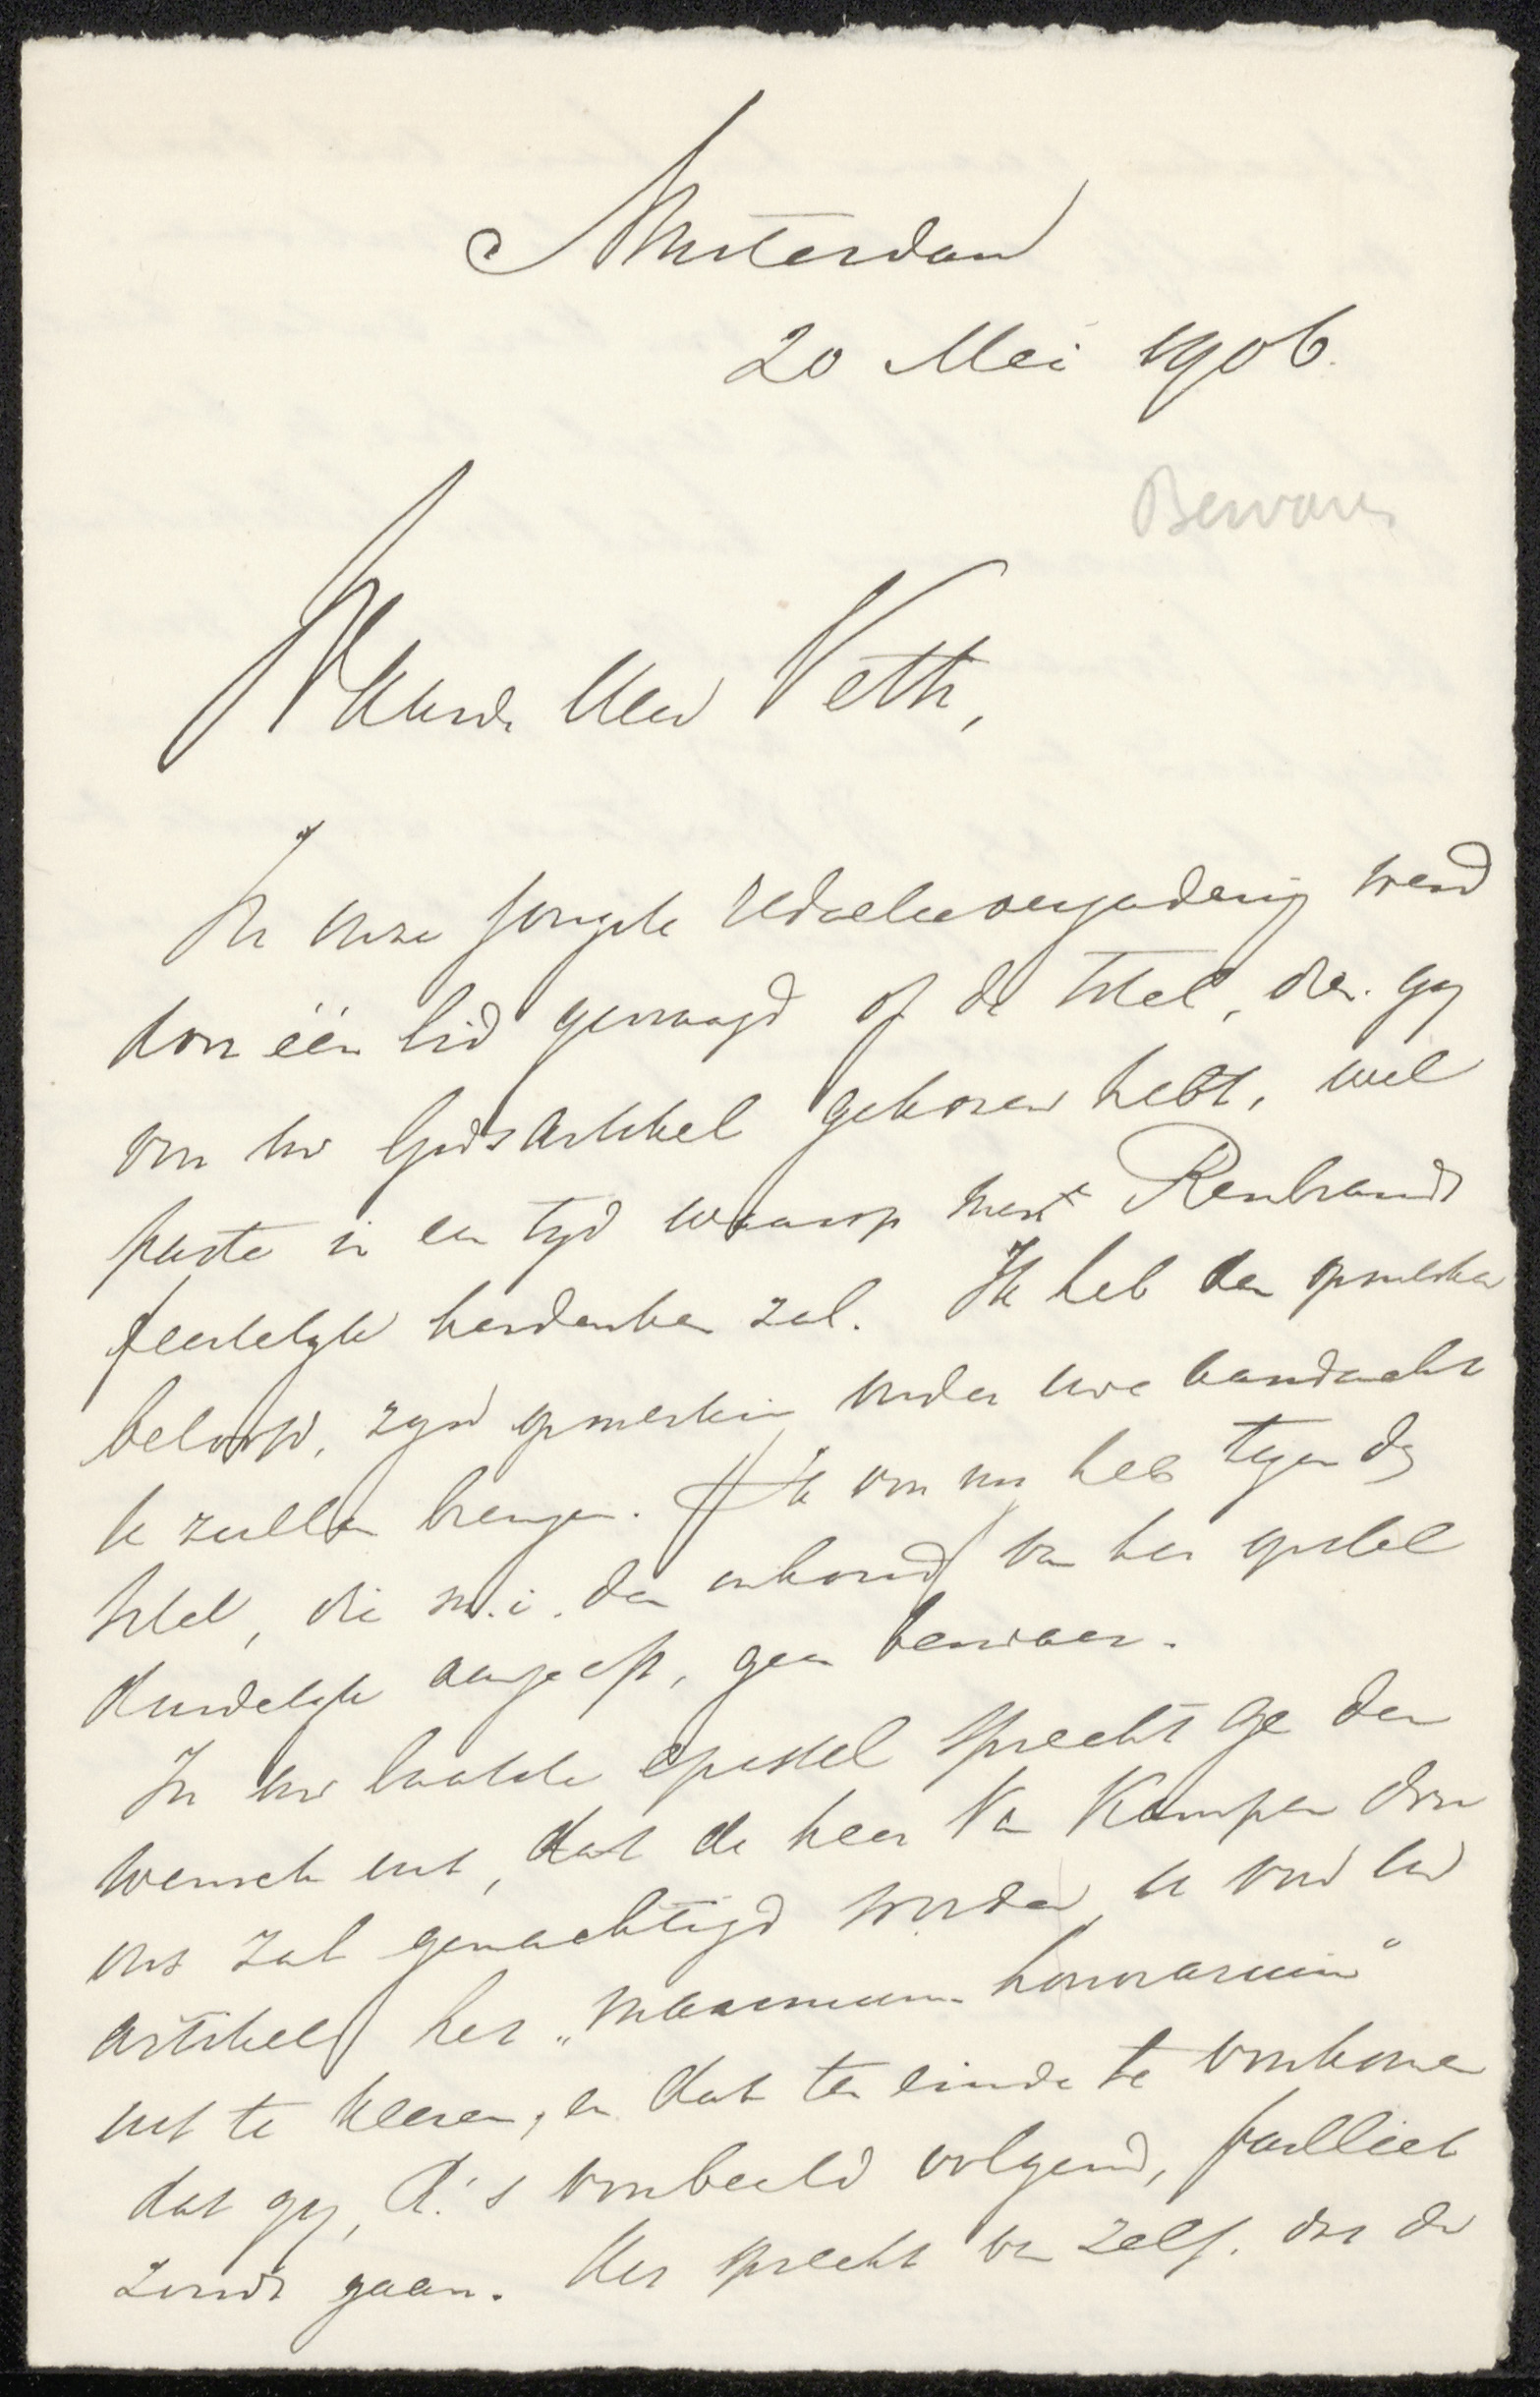 Amsterdam
20 Mei 1906.
Bewaren
Waarde Heer Veth,
In onze jongste redactievergadering werd
door één lid gevraagd of de titel, dien gij
voor uw Gidsartikel gekozen hebt, wel
paste in een tijd waarop men Rembrandt
feestelijk herdenken zal. Ik heb den opmerker
beloofd, zijn opmerking onder uwe aandacht
te zullen brengen. Ik voor mij heb tegen dien
titel, die m.i. den inhoud van het opstel
duidelijk aangeeft, geen bezwaar.
In uw laatste epistel spreekt ge den
wensch uit, dat de heer Van Kampen door
ons zal gemachtigd worden u voor uw
artikel het „maximum honorarium"
uit te keeren, en dat ten einde te voorkomen
dat gij, R.'s voorbeeld volgend, failliet
zoudt gaan. Het spreekt van zelf, dat de